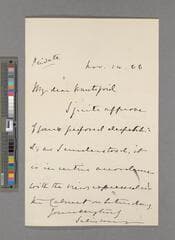 Private
Nov. 14. 66
My dear
I quite approve
of your proposed despatch:
&, as I understand, it
is in entire accordance
with the views expressed in
the Cabinet on Saturday
Yours very truly
Salisbury